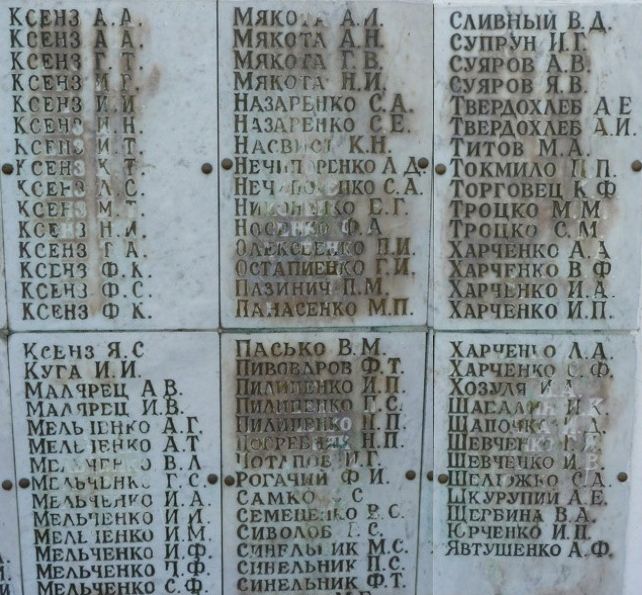 КСЕНЗ А.А.
КСЕНЗ А.А.
КСЕНЗ Г.Т.
КСЕНЗ И.Г.
КСЕНЗ И.И.
КСЕНЗ И.Н.
КСЕНЗ И.Т.
КСЕНЗ К.Т.
КСЕНЗ Л.С.
КСЕНЗ М.Т.
КСЕНЗ Н.И.
КСЕНЗ А.
КСЕНЗ Ф.К.
КСЕНЗ Ф.С.
КСЕНЗ Ф К.
МЯКОТА А.И.
МЯКОТА А.Н.
МЯКОТА Г.В.
МЯКОТА Н.И.
НАЗАРЕНКО С.А.
НАЗАРЕНКО С.Е.
НАСВИСТ К.Н.
НЕЧИПОРЕНКО А Д.
НЕЧИПОРЕНКО С.А.
НИКОНЕНКО Е.Г.
НОСЕНКО Ф А
ОЛЕКСЕЕНКО П.И.
ОСТАПИЕНКО Г.И.
ПАЗИНИЧ П.М.
ПАНАСЕНКО М.П.
СЛИВНЫЙ В.Д.
СУПРУН И.Г.
СУЯРОВ А.В.
СУЯРОВ Я.В.
ТВЕРДОХЛЕБ А Е
ТВЕРДОХЛЕБ А.И.
ТИТОВ М.А.
ТОКМИЛО П.П.
ТОРГОВЕЦ К Ф
ТРОЦКО М.М
ТРОЦКО С.М
ХАРЧЕНКО А.А
ХАРЧЕНКО В Ф
ХАРЧЕНКО И.А.
ХАРЧЕНКО И.П.
КСЕНЗ Я.С
КУГА И.И.
МАЛЯРЕЦ А В.
МАЛЯРЕЦ И.В.
МЕЛЬЧЕНКО А.Г.
МЕЛЬЧЕНКО А.Т
МЕЛЬЧЕНКО В.Л
МЕЛЬЧЕНКО Г.С.
МЕЛЬЧЕНКО И.А.
МЕЛЬЧЕНКО И И.
МЕЛЬЧЕНКО И.М.
МЕЛЬЧЕНКО И.Ф.
МЕЛЬЧЕНКО Ф.
МЕЛЬЧЕНКО С.Ф.
ПАСЬКО В.М.
ПИВОВАРОВ Ф.Т.
ПИЛИПЕНКО И.П.
ПИЛИПЕНКО С.
ПИЛИПЕНКО Н П.
ПОГРЕБНЯК Н.П.
ПОТАПОВ И.Г.
РОГАЧИЙ Ф И.
САМКО С
СЕМЕНЕНКО В.С.
СИВОЛОБ С.
СИНЕЛЬНИК М.С.
СИНЕЛЬНИК П.С.
СИНЕЛЬНИК Ф.Т
ХАРЧЕНКО Л.А.
ХАРЧЕНКО Ф.
ХОЗУЛЯ И
И.К
ШАПОЧКА
ШЕВЧЕНКО
ШЕВЧЕНКО И.
ШЕЛЮЖКО С.Д.
ШКУРУПИЙ А.Е.
ЩЕРБИНА В.А.
ЮРЧЕНКО И.П
ЯВТУШЕНКО А.Ф.